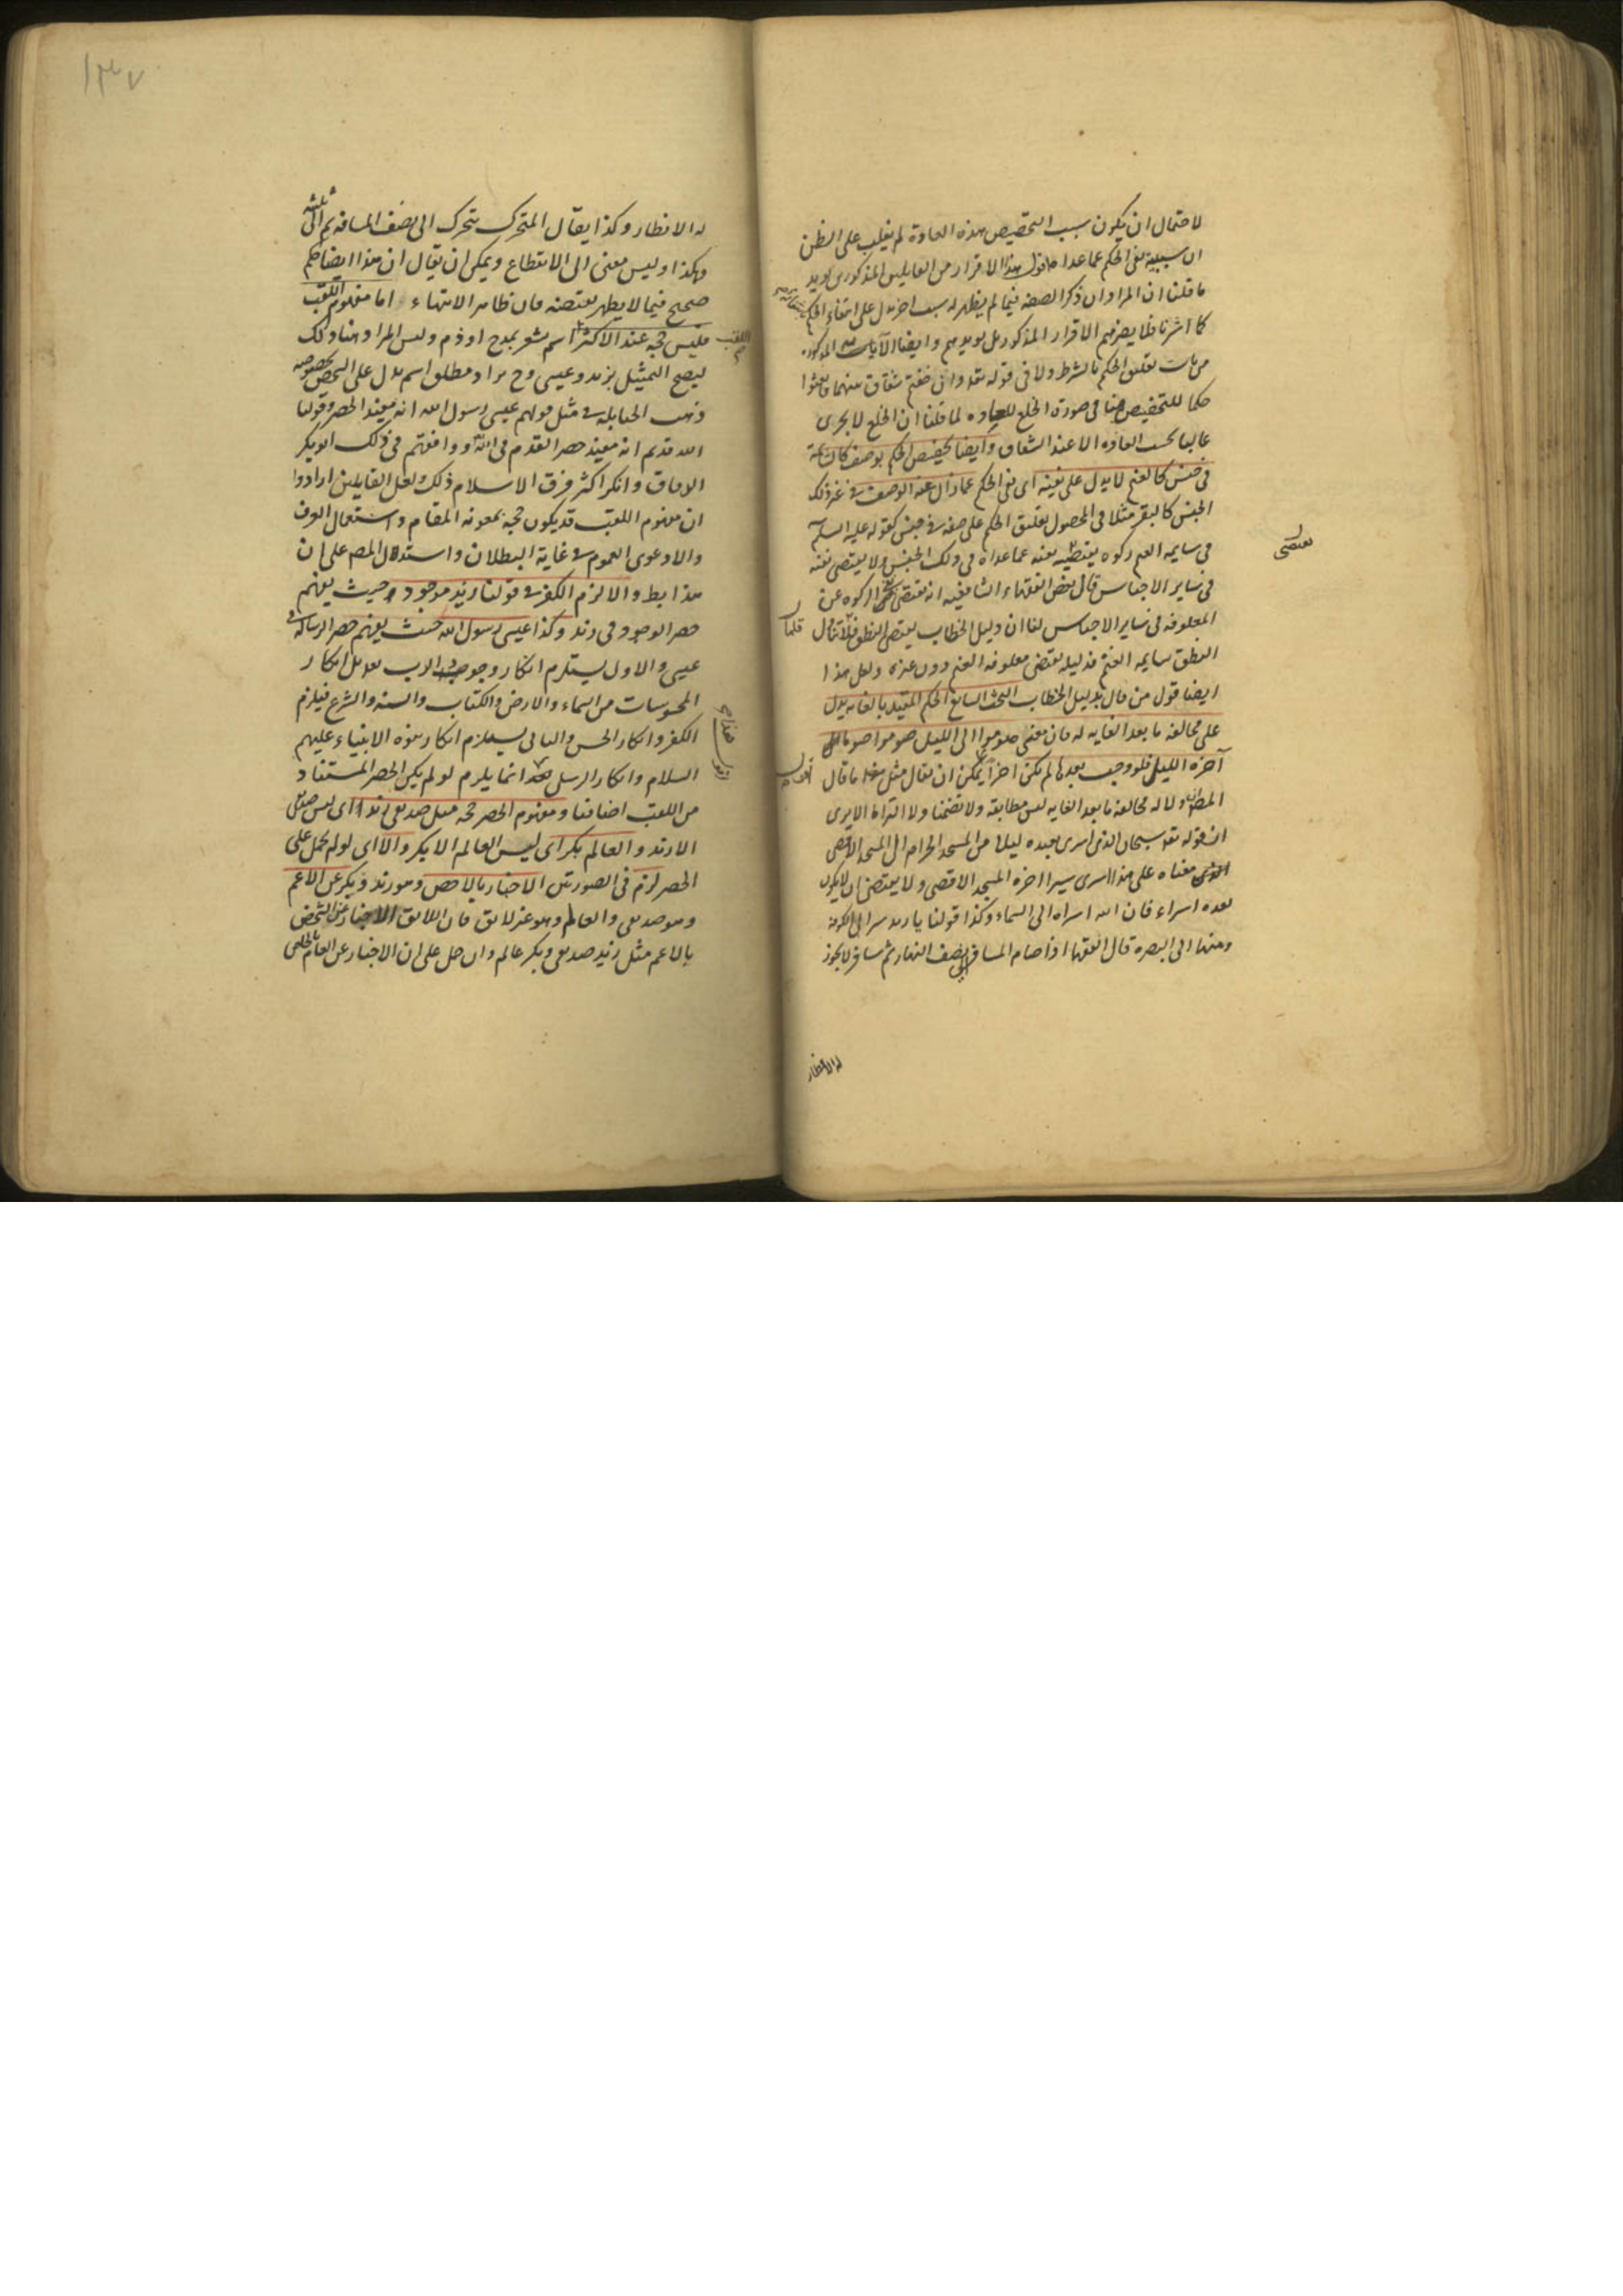 لاحتمال ان يكون سبب التخصيص هذه العادة لم يغلب على الظن
ان سببه نفى الحكم عما عداه هذا الاقرار من القايلين المذكورين يويد
ما قلنا ان المراد ان ذكر الصفة فيما لم يظهر له سبب اخر يدل على انتفاء الحكم
كما اشرنا فلا يضرهم الاقرار المذكور بل يويدهم وايضا الآيات المذكورة
من باب تعليق الحكم بالشرط ولا فى قوله تعه وان خفتم شقاق بينهما فابعثوا
حكما للتخصيص هنا فى صورة الخلع للعادة لما قلنا ان الخلع لا يجرى
غالبا بحسب العادة الا عند الشقاق وايضا تخصيص الحكم بوصف كالسايمة
فى جنس كالغنم لا يدل على نفيه اى نفى الحكم عما زال عنه الوصف فى غير ذلك
الجنس كالبقر مثلا فى المحصول تعليق الحكم على صفة فى جنس كقوله عليه السلم
فى سايمة الغنم زكوة يقتضى نفيه عما عداه فى ذلك الجنس ولا يقتضى نفيه
يقتضى
فى ساير الاجناس قال بعض الفقهاء الشافعية انه يقتضى نفى الزكوة عن
المعلوفة فى ساير الاجناس لنا ان دليل الخطاب يقتضى النطق فلما تناول
فلما
النطق سايمة الغنم فدليله يقتضى معلوفة الغنم دون غيره ولعل هذا
ايضا قول من قال بدليل الخطاب البحث السابع الحكم المقيد بالغاية يدل
على مخالفة ما بعد الغاية له فان معنى صوموا الى الليل صوموا صوما
آخره الليل فلو وجب بعده لم يكن اخرا يمكن ان يقال مثل هذا ما قال
المص لا دلالة له مخالفة ما بعد الغاية ليس مطابقة ولا تضمنا ولا التزاما الا يرى
ان قوله تعه سبحان الذى اسرى بعبده ليلا من المسجد الحرام الى المسجد الاقصى
الذى معناه على هذا اسرى سيرا اخره المسجد الاقصى ولا يقتضى ان لا يكون
بعده اسراء فان الله اسراه الى السماء وكذا قولنا يا زيد سر الى الكوفة
ومنها الى البصرة قال الفقها اذا صام المسافر الى نصف النهار ثم سافر لا يجوز
له الافطار
١٣٧
له الافطار وكذا يقال المتحرك يتحرك الى نصف المسافة ثم الى ثلثه
وهكذا وليس معنى الى الانقطاع ويمكن ان يقال ان هذا ايضا حكم
صحيح فيما لا يظهر نقيضه فان ظاهر الانتهاء اما مفهوم اللقب
فليس حجة عند الاكثر اسم مشعر بمدح او ذم وليس المراد هنا ذلك
اللقب
ليصح التمثيل بزيد وعيسى وح يراد مطلق اسم يدل على الشخص بخصوصه
وذهب الحنابلة فى مثل قولهم عيسى رسول الله انه يفيد الحصر وقولنا
الله قديم انه يفيد حصر القدم فى الله ووافقهم فى ذلك ابو بكر
الدقاق وانكر اكثر فرق الاسلام ذلك ولعل القايلين ارادوا
ان مفهوم اللقب قد يكون حجة بمعونة المقام واستعمال العرف
والا دعوى العموم فى غاية البطلان واستدلال المص على ان
هذا بط والا لزم الكفر فى قولنا زيد موجود حيث يفهم
حصر الوجود فى زيد وكذا عيسى رسول الله حيث يفهم حصر الرسالة فى
عيسى والاول يستلزم انكار وجود الرب بل انكار
المحسوسات من السماء والارض والكتاب والسنة والشرع فيلزم
الكفر وانكار الحس والثانى يستلزم انكار نبوة الانبياء عليهم
السلام وانكار الرسل هذا انما يلزم لو لم يكن الحصر المستفاد
اقول هذا
من اللقب اضافيا ومفهوم الحصر حجة مثل صديقى زيد اى ليس صديقى
الا زيد والعالم بكر اى ليس العالم الا بكر والا اى لو لم يحمل على
الحصر لزم فى الصورتين الاخبار بالاخص وهو زيد وبكر عن الاعم
وهو صديقى والعالم وهو غير لايق فان اللايق الاخبار عن الشخص
بالاعم مثل زيد صديقى وبكر عالم وان حل على ان الاخبار عن العام